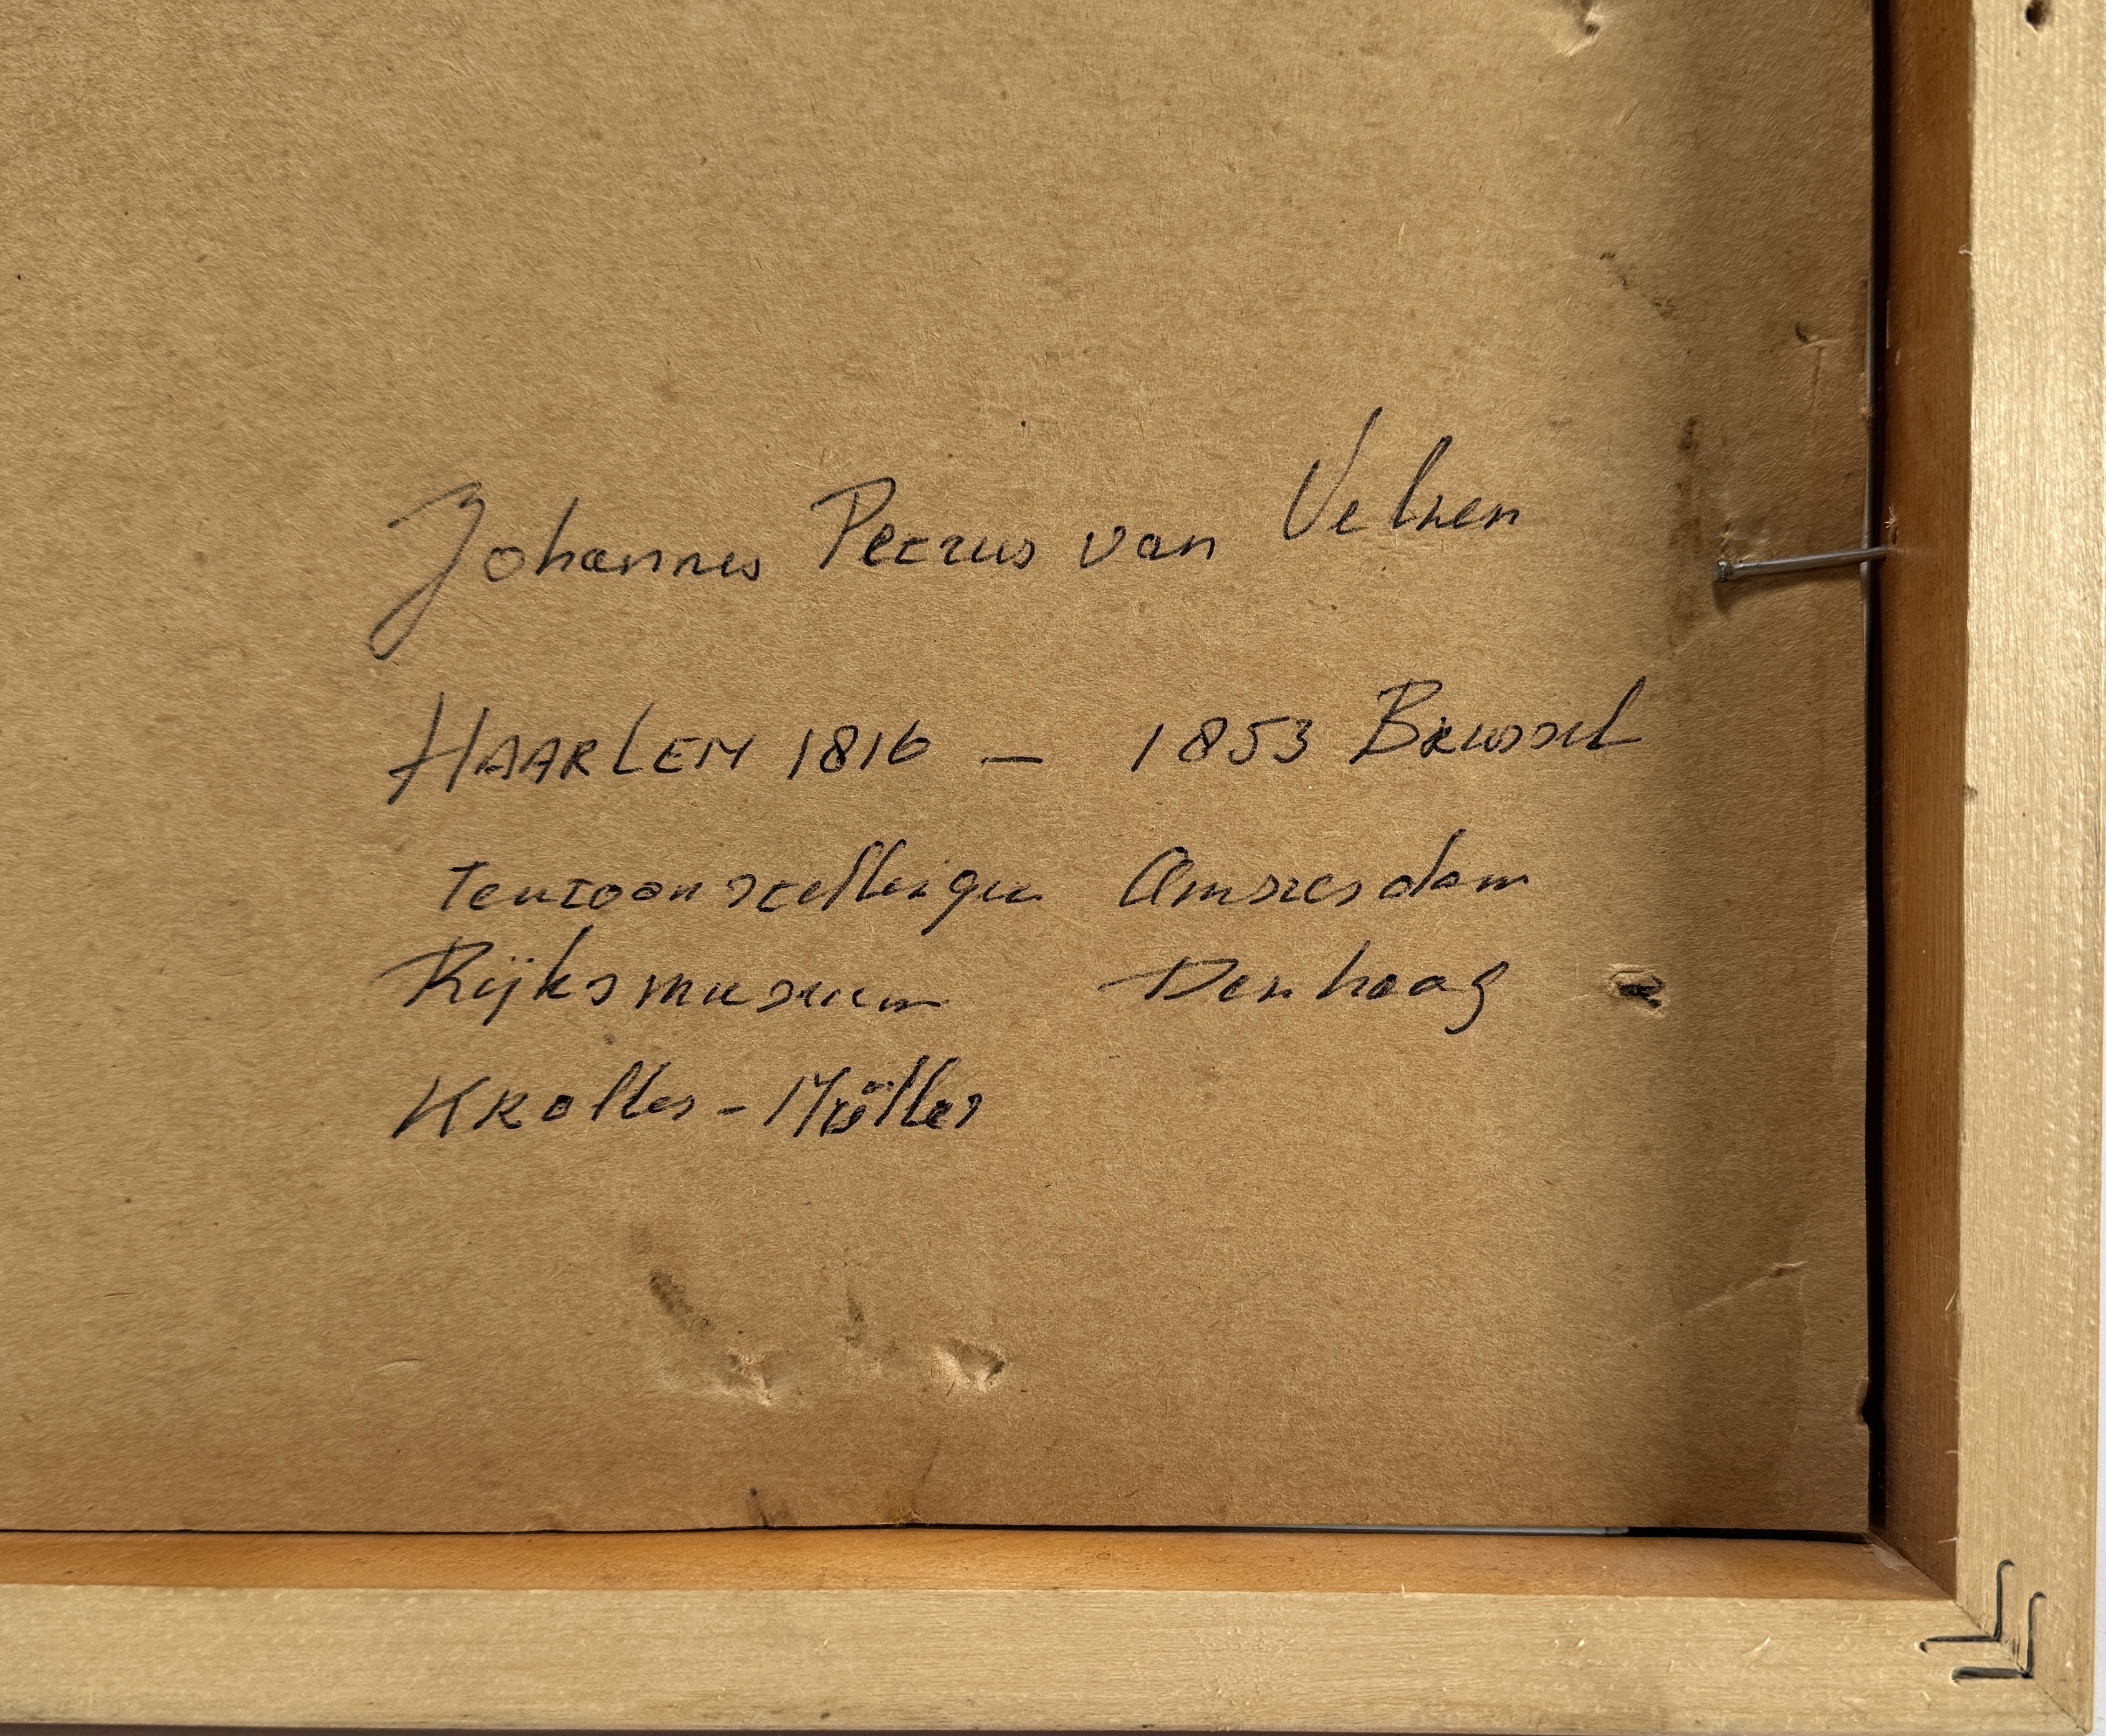 Johannes Petrus van Velzen
HAARLEM 1816 – 1853 Brussel
Tentoonstellingen Amsterdam
Rijksmuseum Den haag
Kroller-Möller